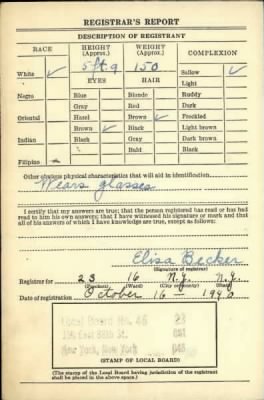 REGISTRAR'S REPORT
DESCRIPTION OF REGISTRANT
RACE HEIGHT (Approx.) WEIGHT (Approx.) COMPLEXION
5 ft. 9 150
White ✓ EYES HAIR Sallow ✓
Light
Negro Blue Blonde Ruddy
Gray Red Dark
Oriental Hazel Brown ✓ Freckled
Brown ✓ Black Light brown
Indian Black Gray Dark brown
Bald Black
Filipino
Other obvious physical characteristics that will aid in identification
Wears glasses
I certify that my answers are true; that the person registered has read or has had
read to him his own answers; that I have witnessed his signature or mark and that
all of his answers of which I have knowledge are true, except as follows:
Elisa Becker
(Signature of registrar)
Registrar for 23 16 N.Y. N.Y.
(Precinct) (Ward) (City or county) (State)
Date of registration October 16 - 1940
Local Board No. 46
New York, New York
(STAMP OF LOCAL BOARD)
(The stamp of the Local Board having jurisdiction of the registrant shall
be placed in the above space.)